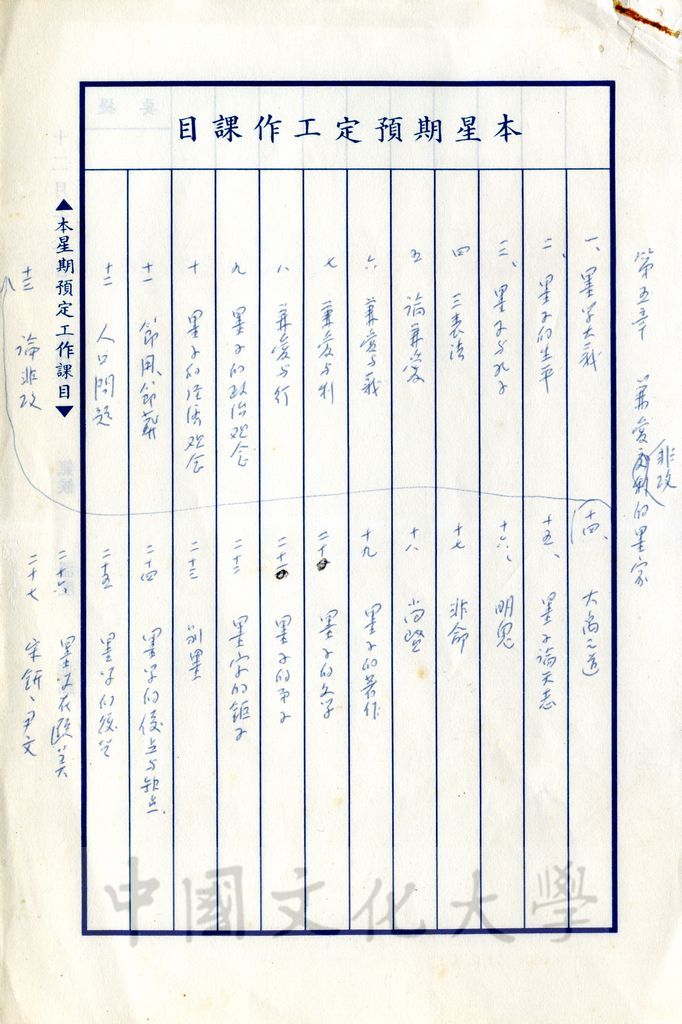 本星期預定工作課目
第五章 兼愛非攻的墨家
一、墨学大義
二、墨子的生平
三、墨子与孔子
四 三表法
五 論兼愛
六 兼愛与義
七 兼愛与利
八 兼愛与行
九 墨子的政治观念
十 墨子的经济观念
十一 節用節葬
十二 人口問題
十三 論非攻
十四、 大禹之道
十五、 墨子論天志
十六、 明鬼
十七 非命
十八 尚賢
十九 墨子的著作
二十 墨子的文学
二十一 墨子的弟子
二十二 墨家的鉅子
二十三 別墨
二十四 墨学的優点与缺点
二十五 墨学的衰亡
二十六 墨学在歐美
二十七 宋鈃、尹文
▲本星期預定工作課目▼
中國文化大學